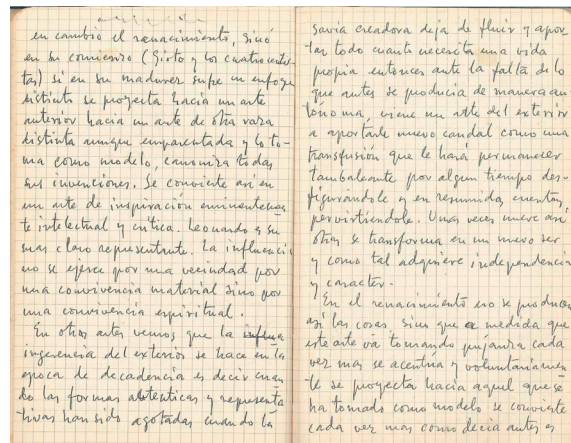 en cambio el renacimiento, sinó
en su comienzo (Giotto y los cuatrocentis-
tas) si en su madurez sufre un enfoque
distinto se proyecta hacia un arte
anterior hacia un arte de otra raza
distinta aunque emparentada y lo to-
ma como modelo, canoniza todas
sus invenciones. Se convierte así en
un arte de inspiración eminentemen
te intelectual y crítica. Leonardo es su
mas claro representante. La influencia
no se ejerce por una vecindad por
una convivencia material sino por
una convivencia espiritual.
En otras artes vemos que la
ingerencia del exterior se hace en la
epoca de decadencia es decir cuan
do las formas autenticas y representa
tivas han sido agotadas cuando la
savia creadora deja de fluir y apor-
tar todo cuanto necesita una vida
propia entonces ante la falta de lo
que antes se producia de manera au
tónoma, viene un arte del exterior
a aportarle nuevo caudal como una
transfusión que le hará permanecer
tambaleante por algun tiempo des-
figurándole y en resumidas cuentas,
pervirtiendole. Unas veces muere asi
otras se transforma en un nuevo ser
y como tal adquiere independencia
y caracter.
En el renacimiento no se producen
asi las cosas, sino que a medida que
este arte va tomando pujanza cada
vez mas se acentúa y voluntariamen
te se proyecta hacia aquel que se
ha tomado como modelo se convierte
cada vez mas como decia antes es